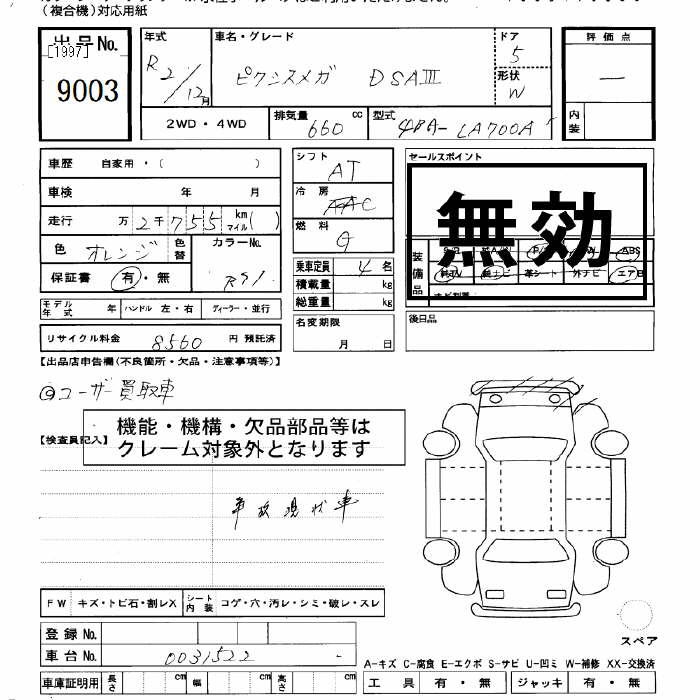 （複合機）対応用紙
出品No.
[1997]
9003
年式
R2/12月
車名・グレード
ピクシスメガ DSAⅢ
ドア
5
形状
W
評価点
—
内装
2WD・4WD
排気量
660
cc
型式
4BA-LA700A
車歴 自家用・（ ）
車検 年 月
走行 万 2千755 km マイル( )
色 オレンジ 色替
カラーNo.
R71
保証書 有・無
モデル年式 年 ハンドル 左・右 ディーラー・並行
リサイクル料金 8560 円 預託済
シフト
AT
冷房
AAC
燃料
G
乗車定員 4 名
積載量 kg
総重量 kg
名変期限
月 日
セールスポイント
無効
装備品
ABS
革シート 外ナビ エアB
後日品
【出品店申告欄(不良箇所・欠品・注意事項等)】
◎ユーザー買取車
機能・機構・欠品部品等は
クレーム対象外となります
【検査員記入】
事故現状車
FW キズ・トビ石・割レX シート内装 コゲ・穴・汚レ・シミ・破レ・スレ
登録No.
車台No. 0031522 -
車庫証明用 長さ cm 幅 cm 高さ cm
スペア
A-キズ C-腐食 E-エクボ S-サビ U-凹ミ W-補修 XX-交換済
工具 有・無 ジャッキ 有・無